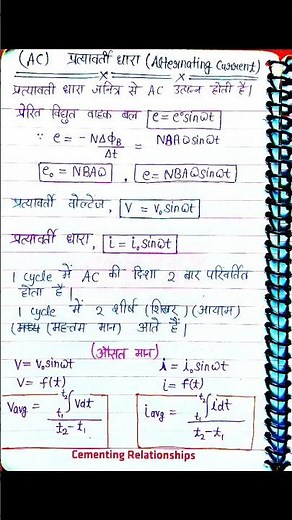 (AC) प्रत्यावर्ती धारा (Alternating Current)
प्रत्यावर्ती धारा जनित्र से AC उत्पन्न होती है।
प्रेरित विद्युत वाहक बल e = e° sinωt
∵ e = -NΔΦB/Δt = NBAΩ sinωt
e₀ = NBAΩ , e = NBAΩ sinωt
प्रत्यावर्ती वोल्टेज, V = V₀ sinωt
प्रत्यावर्ती धारा, i = i₀ sinωt
1 cycle में AC की दिशा 2 बार परिवर्तित
होता है।
1 cycle में 2 शीर्ष (शिखर) (आयाम)
(महत्तम मान) आते हैं।
(औसत मान)
V = V₀ sinωt i = i₀ sinωt
V = f(t) i = f(t)
Vavg = ∫t₁t₂ Vdt / t₂-t₁ iavg = ∫t₁t₂ idt / t₂-t₁
Cementing Relationships